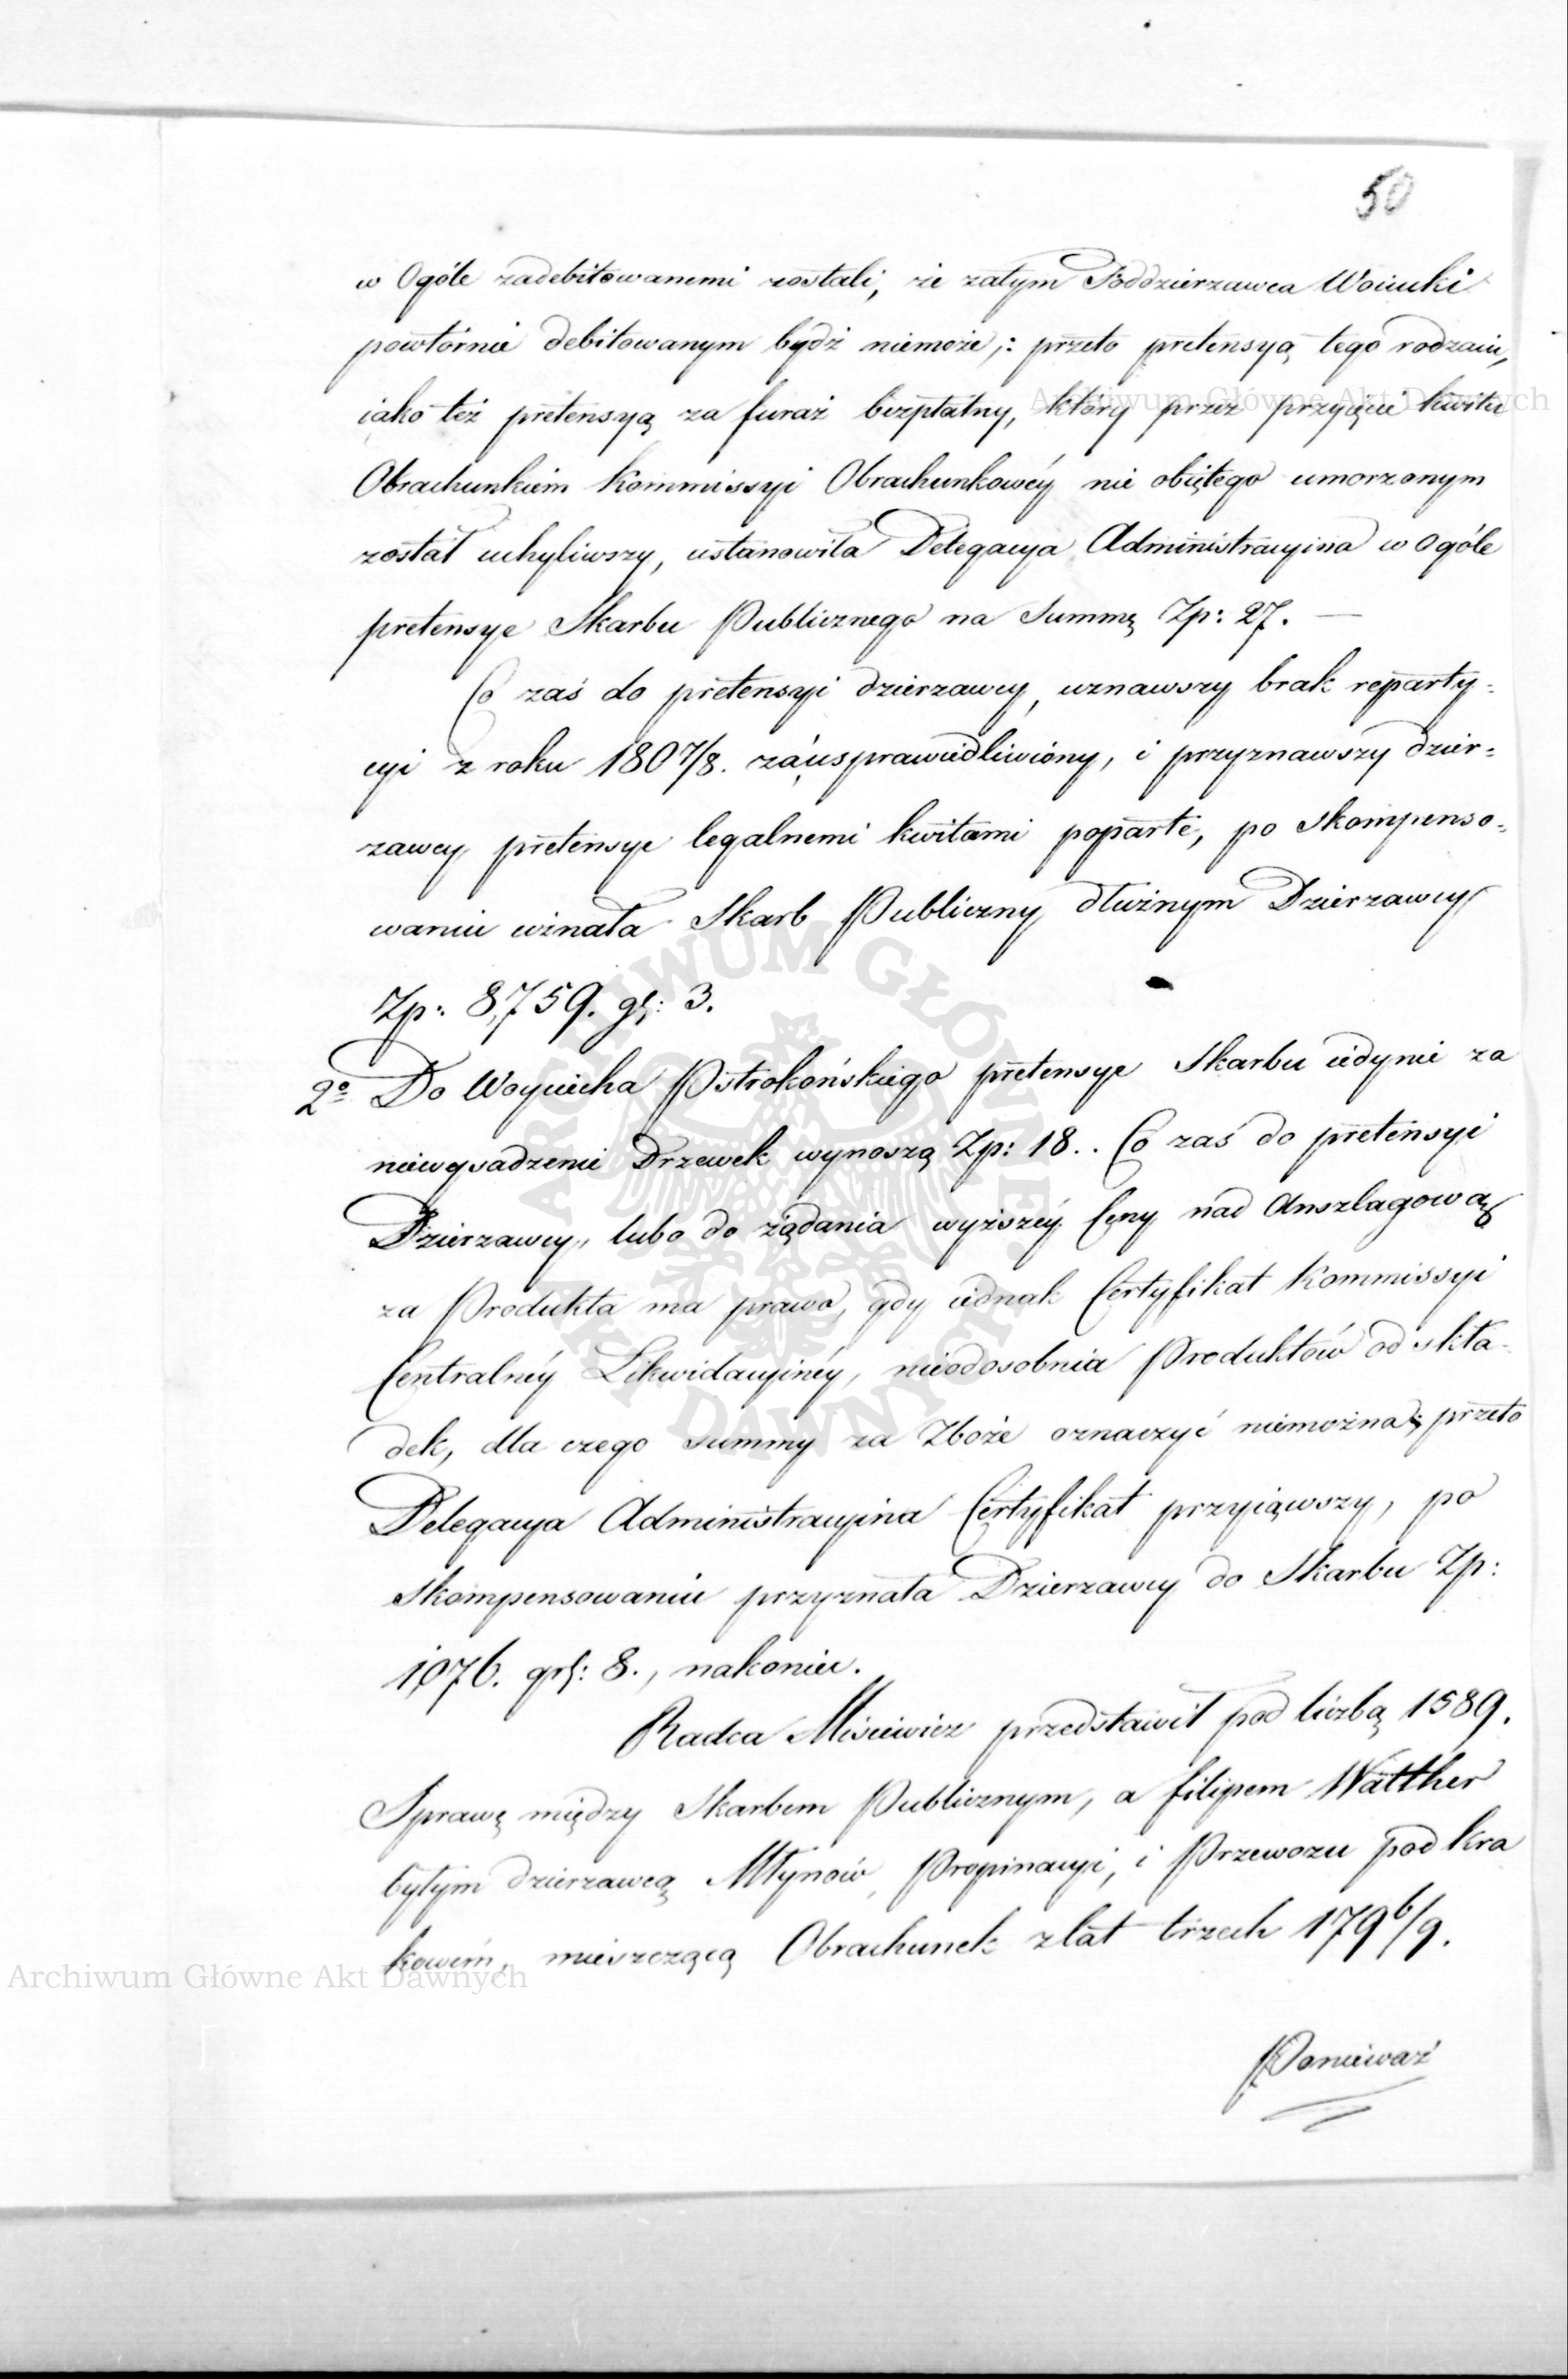 50
w Ogóle zadebitowanemi zostali, że zatym Poddzierzawca Woiucki
powtórnie debitowanym bydź niemoże,: przeto pretensyą tego rodzaiu,
iako też pretensyą za furaż bezpłatny, który przez przyięcie kwitu
Obrachunkiem Kommissyi Obrachunkowéy nie obiętego umorzonym
został uchyliwszy, ustanowiła Delegacya Administracyina w Ogóle
pretensye Skarbu Publicznego na Summę Zp: 27. —
Co zaś do pretensyi dzierzawcy, uznawszy brak reparty-
cyi z roku 1807/8. za usprawiedliwiony, i przyznawszy dzier-
zawcy pretensye legalnemi kwitami poparte, po skompenso-
waniu uznała Skarb Publiczny dłużnym Dzierzawcy
Zp: 8,759. gr: 3.
2o Do Woyciecha Pstrokońskiego pretensye Skarbu iedynie za
niewysadzenie Drzewek wynoszą Zp: 18.. Co zaś do pretensyi
Dzierzawcy, lubo do żądania wyższéy Ceny nad Anszlagową
za Produkta ma prawo, gdy iednak Certyfikat Kommissyi
Centralnéy Likwidacyinéy, nieodosobnia Produktów od skła-
dek, dla czego summy za Zboże oznaczyć niemożna; przeto
Delegacya Administracyina Certyfikat przyiąwszy, po
skompensowaniu przyznała Dzierzawcy do Skarbu Zp:
1,076. gr: 8., nakoniec.
Radca Misiewicz przedstawił pod liczbą 1589.
Sprawę między Skarbem Publicznym, a filipem Walther
byłym dzierzawcą Młynów, Propinacyi, i Przewozu pod Kra
kowem, mieszczącą Obrachunek z lat trzech 1796/9.
Ponieważ
Archiwum Główne Akt Dawnych
Archiwum Główne Akt Dawnych
ARCHIWUM GŁÓWNE AKT DAWNYCH